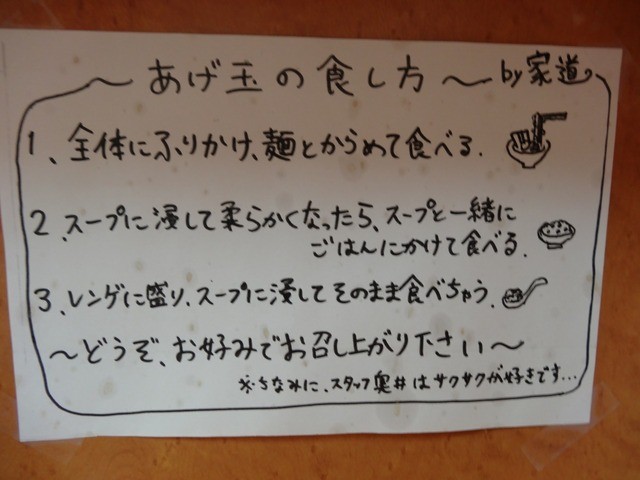 ～あげ玉の食し方～by家道
1、全体にふりかけ、麺とからめて食べる.
2、スープに浸して柔らかくなったら、スープと一緒に
ごはんにかけて食べる.
3、レンゲに盛り、スープに浸してそのまま食べちゃう.
～どうぞ、お好みでお召し上がり下さい～
※ちなみに、スタッフ奥井はサクサクが好きです...